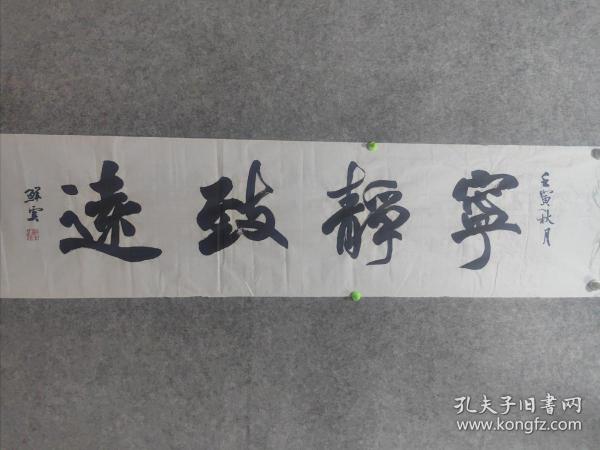 壬寅秋月
寧靜致遠
孔夫子旧書网
www.kongfz.com